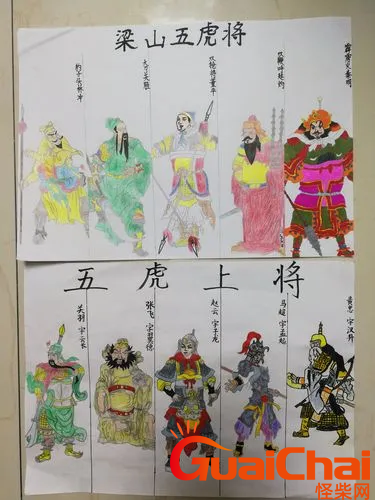 梁山五虎将
豹子头林冲
大刀关胜
双枪将董平
双鞭呼延灼
霹雳火秦明
五虎上将
关羽 字云长
张飞 字翼德
赵云 字子龙
马超 字孟起
黄忠 字汉升
GuaiChai
怪柴网